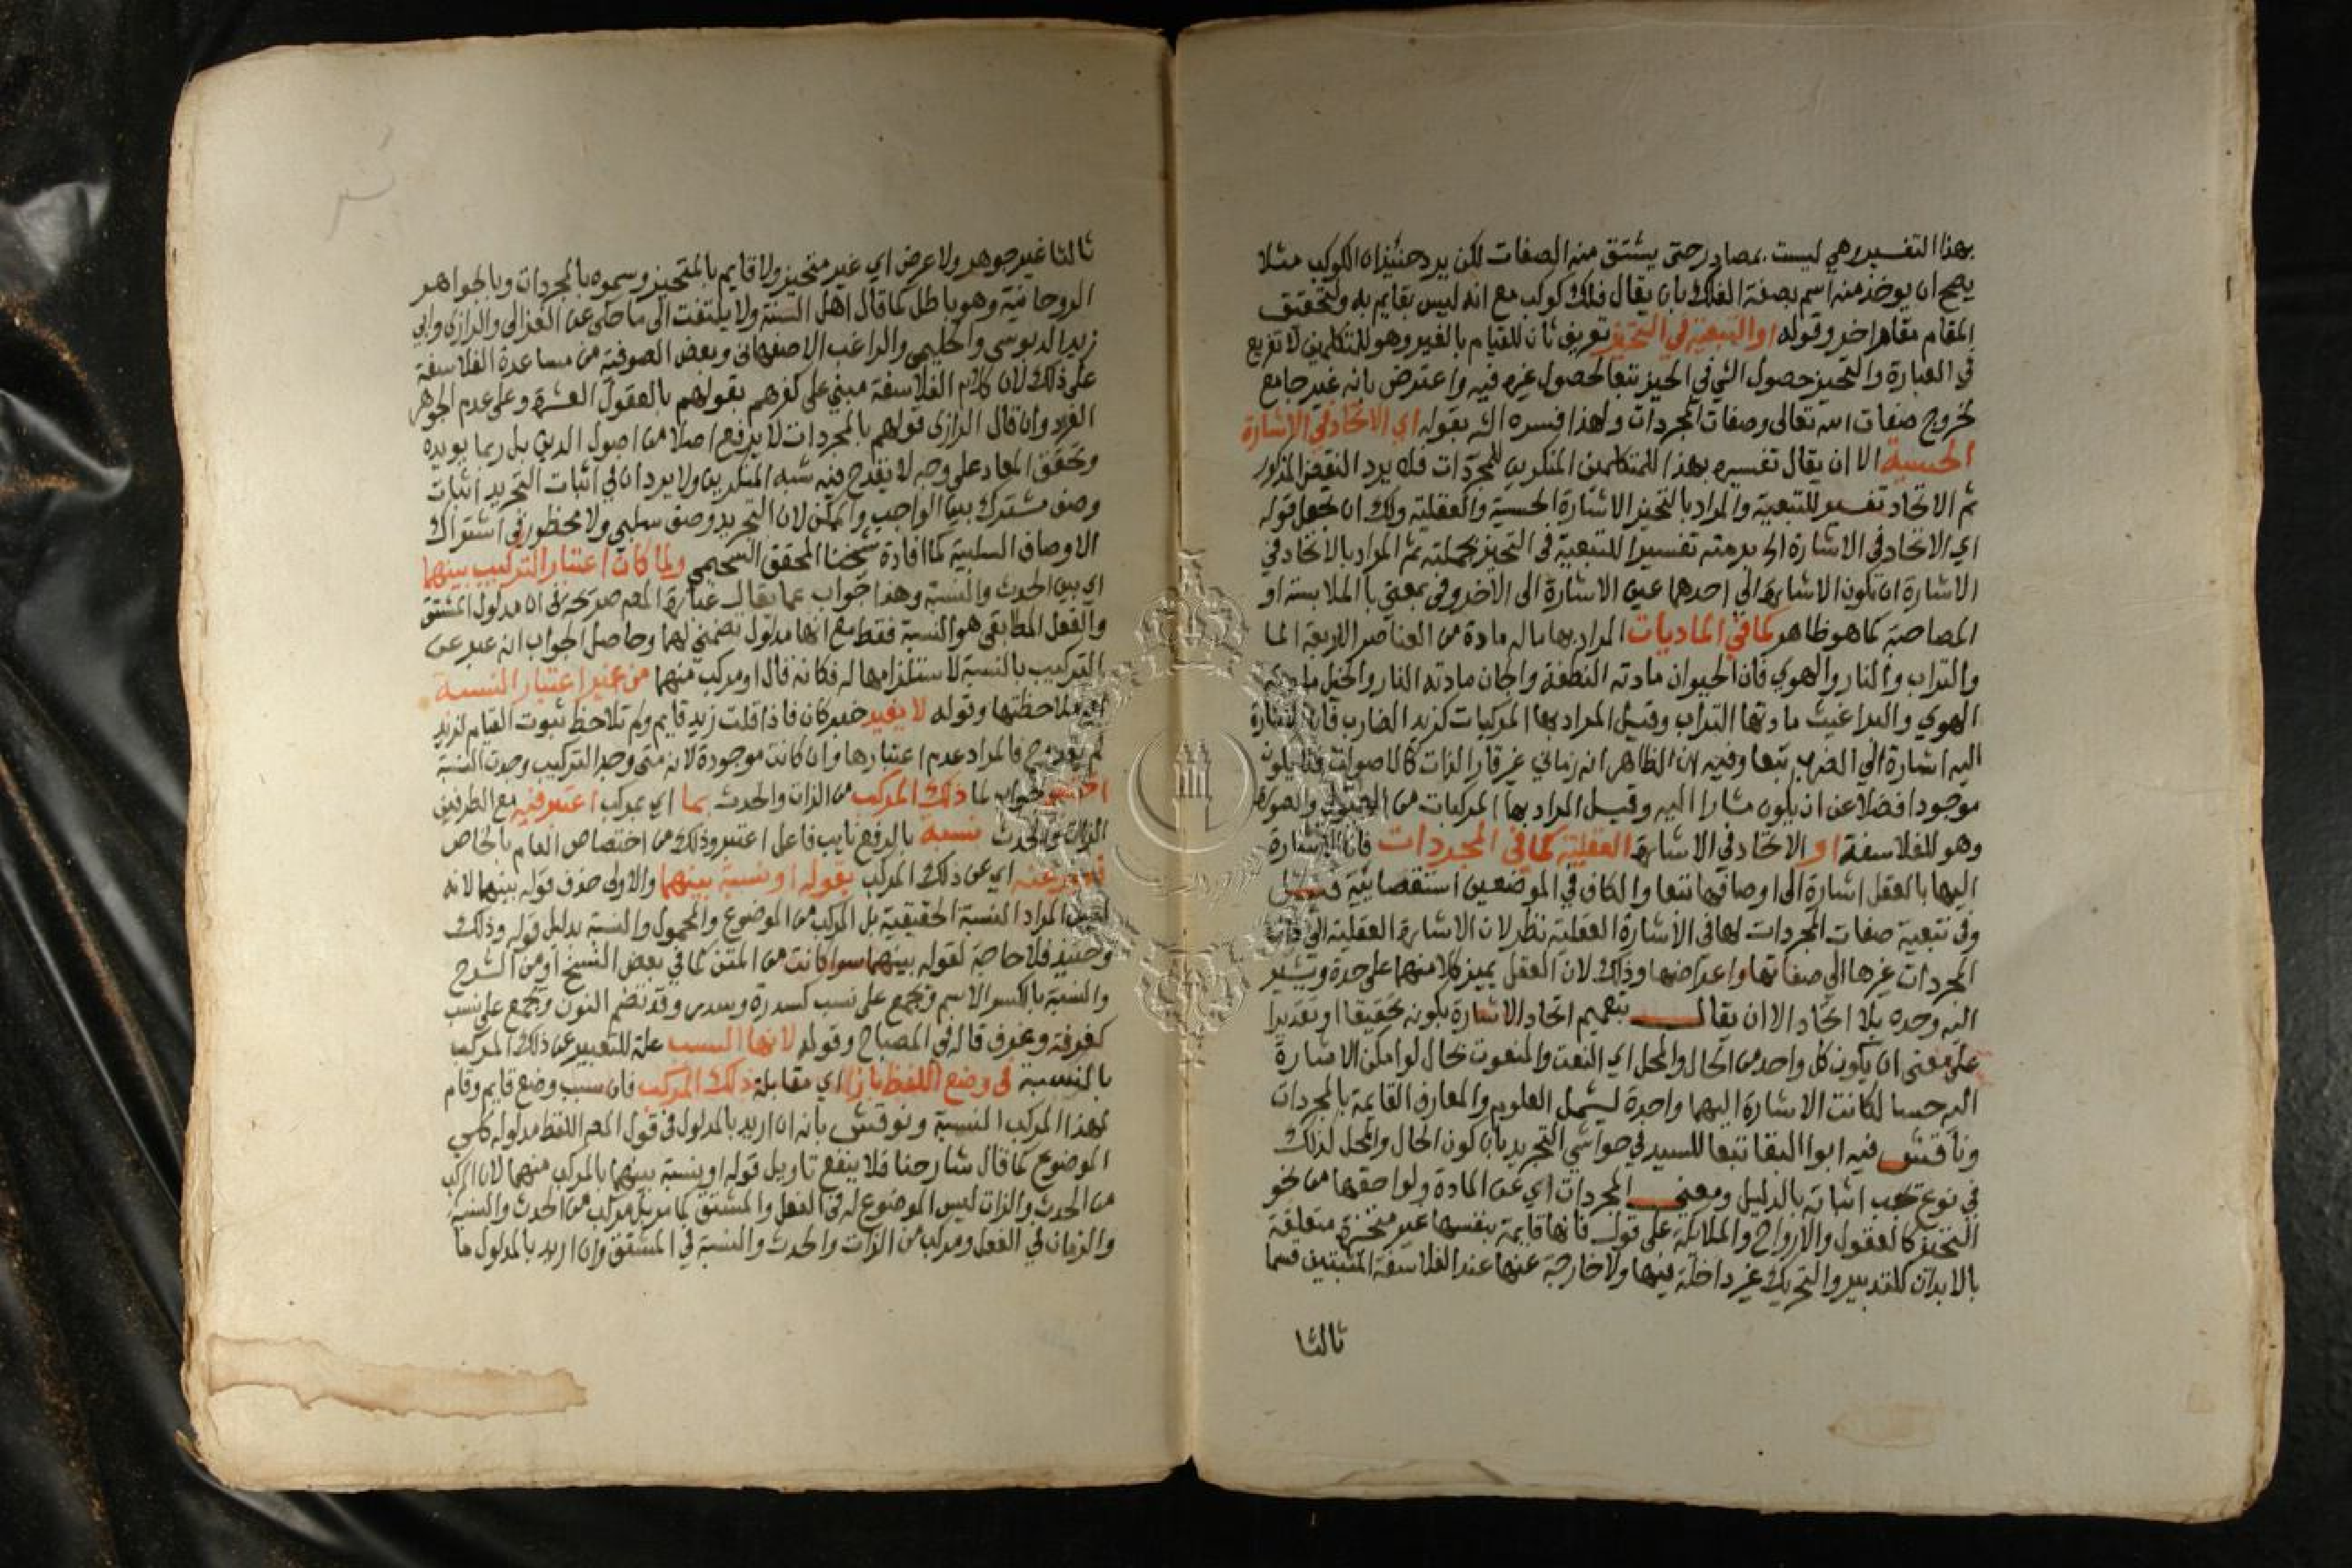 بهذا التفسير وهي ليست بمصادر حتى يشتق منه الصفات لكن يرد حينئذ ان الكوكب مثلا
يصح ان يوخذ منه اسم بصفة الفلك بان يقال فلك كوكب مع انه ليس بقايم به ولتحقيق
المقام مقام اخر وقوله او التبعية في التحيز تعريف ثان للقيام بالغير وهو للمتكلمين لا تفريع
في العبارة والتحيز حصول الشي في الحيز تبعا لحصول غيره فيه واعترض بانه غير جامع
لخروج صفات الله تعالى وصفات المجردات ولهذا فسره الش بقوله اي الاتحاد في الاشارة
الحسية الا ان يقال تفسيره بهذا للمتكلمين المنكرين للمجردات فلا يرد النقض المذكور
ثم الاتحاد تفسير للتبعية والمراد بالتحيز الاشارة الحسية والعقلية ولك ان تجعل قوله
اي الاتحاد في الاشارة الخ برمته تفسيرا للتبعية في التحيز بجملته ثم المراد بالاتحاد في
الاشارة ان تكون الاشارة الى احدهما عين الاشارة الى الاخر وفي بمعنى با الملابسة او
المصاحبة كما هو ظاهر كما في الماديات المراد بها ما له مادة من العناصر الاربعة الما
والتراب والنار والهوي فان الحيوان مادته النطفة والجان مادته النار والخيل مادته
الهوي والبراغيث مادتها التراب وقيل المراد بها المركبات كزيد الضارب فان الاشارة
اليه اشارة الي الضرب تبعا وفيه لان الظاهر انه زماني غير قار الذات كالاصوات فلا يكون
موجودا فضلا عن ان يكون مشارا اليه وقيل المراد بها المركبات من الهيولي والصورة
وهو للفلاسفة او الاتحاد في الاشارة العقلية كما في المجردات فان الاشارة
اليها بالعقل اشارة الى اوصافها تبعا والكاف في الموضعين استقصائية
وفي تبعية صفات المجردات لها في الاشارة العقلية نظر لان الاشارة العقلية الى ذات
المجردات غيرها الي صفاتها واعراضها وذلك لان العقل يميز كلا منهما على حدة ويشير
اليه وحده بلا اتحاد الا ان يقال بتعميم اتحاد الاشارة بكونه تحقيقا او تقديرا
على معنى ان يكون كل واحد من الحال والمحل اي النعت والمنعوت بحال لو امكن الاشارة
اليه حسا لكانت الاشارة اليهما واحدة ليشمل العلوم والمعارف القايمة بالمجردات
وناقش فيه ابوا البقا تبعا للسيد في حواشي التجريد بان كون الحال والمحل لذلك
في نوع اثباته بالدليل ومعنى المجردات اي عن المادة ولواحقها من نحو
التحيز كالعقول والارواح والملائكة على قول فانها قايمة بنفسها غير متحيزة متعلقة
بالابدان للتدبير والتحريك غير داخلة فيها ولا خارجة عنها عند الفلاسفة المثبتين قسما
ثالثا
ثالثا غير جوهر ولا عرض اي غير متحيز ولا قايم بالمتحيز وسموه بالمجردات وبالجواهر
الروحانية وهو باطل كما قال اهل السنة ولا يلتفت الى ما حكى عن الغزالي والرازي وابي
زيد الدبوسي والحليمي والراغب الاصفهاني وبعض الصوفية من مساعدة الفلاسفة
على ذلك لان كلام الفلاسفة مبني على كفرهم بقولهم بالعقول العشرة وعلى عدم الجوهر
الفرد وان قال الرازي قولهم بالمجردات لا يدفع اصلا من اصول الدين بل ربما يويده
وتحقق المعاد على وجه لا يقدح فيه شبه المنكرين ولا يرد ان في اثبات التجريد اثبات
وصف مشترك بين الواجب والممكن لان التجريد وصف سلبي ولا محظور في اشتراك
الاوصاف السلبية كما افادة شيخنا المحقق السجيمي ولما كان اعتبار التركيب بينهما
اي بين الحدث والنسبة وهذا جواب عما يقال عبارة المص صريحة في ان مدلول المشتق
والفعل المطابقي هو النسبة فقط مع انها مدلول تضمني لهما وحاصل الجواب انه عبر عن
التركيب بالنسبة لاستلزامها له فكانه قال او مركب منهما من غير اعتبار النسبة
اي ملاحظتها وقوله لا يفيد خبر كان فاذا قلت زيد قايم ولم تلاحظ ثبوت القيام لزيد
لم يفد فالمراد عدم اعتبارها وان كانت موجودة لانه متى وجد التركيب وجدت النسبة
اختص جواب لما ذلك المركب من الذات والحدث بما اي بمركب اعتبر فيه مع الطرفين
الذات والحدث نسبة بالرفع نايب فاعل اعتبر وذلك من اختصاص العام بالخاص
فعبر عنه اي عن ذلك المركب بقوله او نسبة بينهما والاولى حذف قوله بينهما لانه
ليس المراد النسبة الحقيقية بل المركب من الموضوع والمحمول والنسبة بدليل قوله وذلك
وحينئذ فلا حاجة لقوله بينهما سوا كانت من المتن كما في بعض النسخ او من الشرح
والنسبة بالكسر الاسم وتجمع على نسب كسدرة وسدر وقد تضم النون وتجمع على نسب
كغرفة وغرف قاله في المصباح وقوله لانها السبب علة للتعبير عن ذلك المركب
بالنسبة في وضع اللفظ بازا اي مقابلة ذلك المركب فان سبب وضع قايم وقام
لهذا المركب النسبة ونوقش بانه ان اريد بالمدلول في قول المص اللفظ مدلوله كلي
الموضوع كما قال شارحنا فلا ينفع تاويل قوله او نسبة بينهما بالمركب منهما لان المركب
من الحدث والذات ليس الموضوع له في الفعل والمشتق كما مر بل مركب من الحدث والنسبة
والزمان في الفعل ومركب من الذات والحدث والنسبة في المشتق وان اريد بالمدلول ما